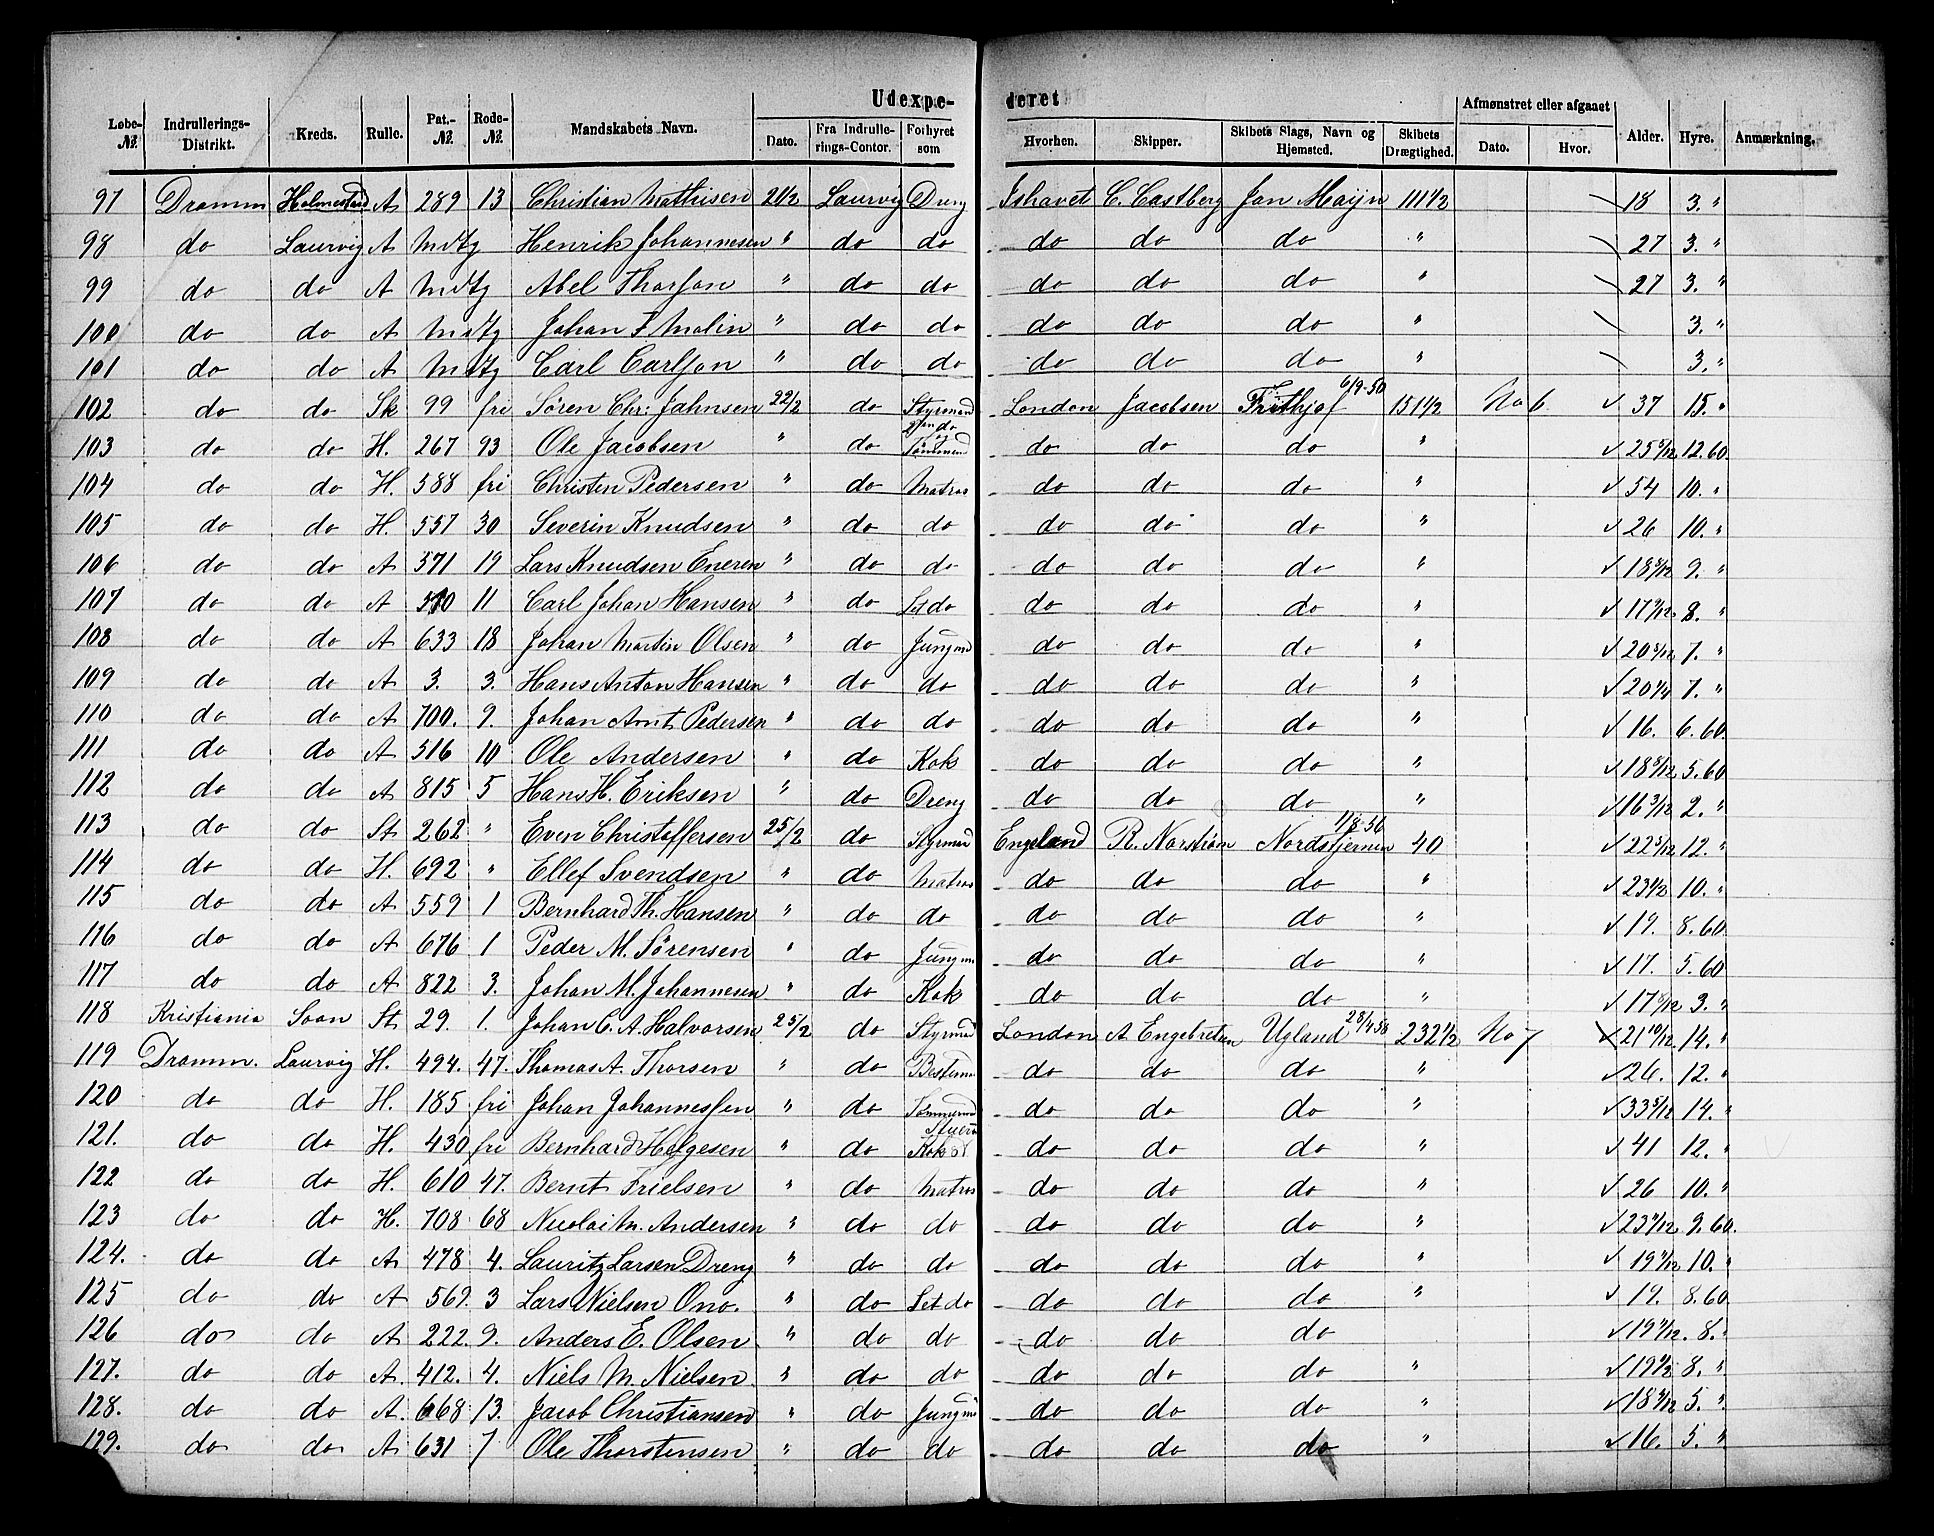 Udexpe- deret
Løbe-№. Indrullerings-Distrikt. Kreds. Rulle. Pat.-№. Rode-№. Mandskabets Navn. Dato. Fra Indrullerings-Contor. Forhyret som Hvorhen. Skipper. Skibets Slags, Navn og Hjemsted. Skibets Drægtighed. Afmønstret eller afgaaet Dato. Hvor. Alder. Hyre. Anmærkning.
97 Dramm Holmestrand A 289 13 Christian Mathisen 21/2 Laurvig Dreng Ishavet C. Castberg Jan Maijn 111 1/2 18 3. "
98 do Laurvig A Mdtg Henrik Johannesen " do do do do do " 27 3. "
99 do do A Mdtg Abel Thorson " do do do do do " 27 3. "
100 do do A Mdtg Johan F Malin " do do do do do " 3. "
101 do do A Mdtg Carl Carlson " do do do do do " 3. "
102 do do Sk 99 fri Sören Chr: Jahnsen 22/2 do Styrmand London Jacobsen Frithjof 6/9-50 151 1/2 No 6 37 15. "
103 do do H. 267 93 Ole Jacobsen " do 2den do og Tømmermd do do do " 25 5/12 12.60.
104 do do H. 588 fri Christen Pedersen " do Matros do do do " 54 10. "
105 do do H. 557 30 Severin Knudsen " do do do do do " 26 10. "
106 do do A 571 19 Lars Knudsen Eneren " do do do do do " 18 5/12 9. "
107 do do A 510 11 Carl Johan Hansen " do Let do do do do " 17 9/12 8. "
108 do do A 633 18 Johan Martin Olsen " do Jungmd do do do " 20 5/12 7. "
109 do do A 3. 3. Hans Anton Hansen " do do do do do " 20 1/4 7. "
110 do do A 700. 9. Johan Arnt Pedersen " do do do do do " 16. 6.60.
111 do do A 516 10 Ole Andersen " do Kok do do do " 18 5/12 5.60
112 do do A 815 5 Hans H. Eriksen " do Dreng do do do " 16 3/12 2. "
113 do do St 262 " Even Christoffersen 25/2 do Styrmd Engeland R. Norström Nordstjernen 11/8-56 40 22 5/12 12. "
114 do do H. 692 " Ellef Svendsen " do Matros do do do " 23 1/2 10. "
115 do do A 559 1 Bernhard Th. Hansen " do do do do do " 19. 8.60
116 do do A 676 1 Peder M. Sörensen " do Jungm do do do " 17. 5.60
117 do do A 822 3. Johan M. Johannesen " do Kok do do do " 17 8/12 3. "
118 Kristiania Soon St 29. 1. Johan C. A. Halvorsen 25/2 do Styrmd London A Engebretsen Ugland 28/4 58 232 1/2 No 7 21 10/12 14. "
119 Dramm. Laurvig H. 494. 47. Thomas A. Thorsen " do Bestmd do do do " 26. 12. "
120 do do H. 185 fri Johan Johannessen " do Tømmermd do do do " 33 5/12 14. "
121. do do H. 430 fri Bernhard Helgesen " do Stuert Kok do do do " 41 12. "
122 do do H. 610 47. Bernt Frielsen " do Matros do do do " 26 10. "
123 do do H. 708 68 Nicolai M. Andersen " do do do do do " 23 7/12 9.60.
124. do do A 478 4. Lauritz Larsen Dreng " do do do do do " 19 7/12 10. "
125 do do A 569. 3 Lars Nielsen Ono. " do Let do do do do " 19. 8.60
126 do do A 222. 9. Anders E. Olsen " do do do do do 19 7/12. 8. "
127. do do A. 412. 4. Niels M. Nielsen " do do do do do " 19 1/2 8. "
128. do do A. 668 13. Jacob Christiansen " do Jungmd do do do " 18 4/12 5. "
129. do do A 631 7 Ole Thorstensen " do do do do do " 16. 5. "